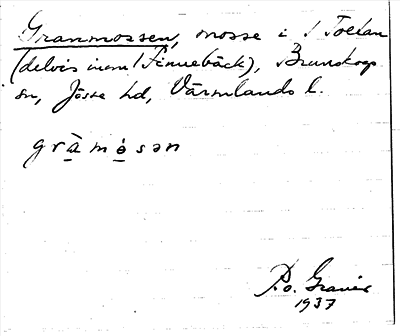 Granmossen, mosse i 1 Toetan
(delvis inom 1 Finnebäck), Brunskogs
sn, Jösse hd, Värmlands l.
gràmɵ̀sən
P.o.
1937